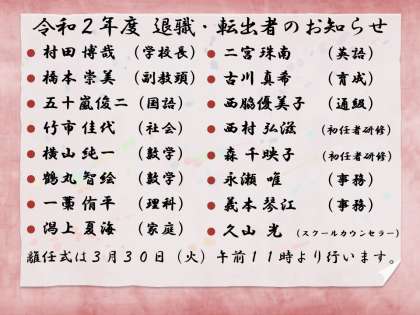 令和２年度 退職・転出者のお知らせ
村田 博哉 （学校長）
橋本 崇美 （副教頭）
五十嵐俊二（国語）
竹市 佳代 （社会）
横山 純一 （数学）
鶴丸 智絵 （数学）
一藁 侑平 （理科）
潟上 夏海 （家庭）
二宮 珠南 （英語）
古川 真希 （育成）
西脇優美子 （通級）
西村 弘滋 （初任者研修）
森 千映子 （初任者研修）
永瀬 唯 （事務）
義本 琴江 （事務）
久山 光 （スクールカウンセラー）
離任式は３月３０日（火）午前１１時より行います。